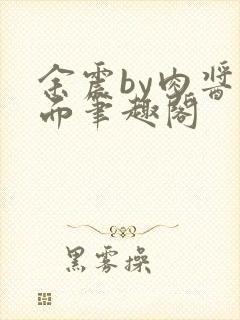 余震by肉酱
而笔趣阁
黑雾操